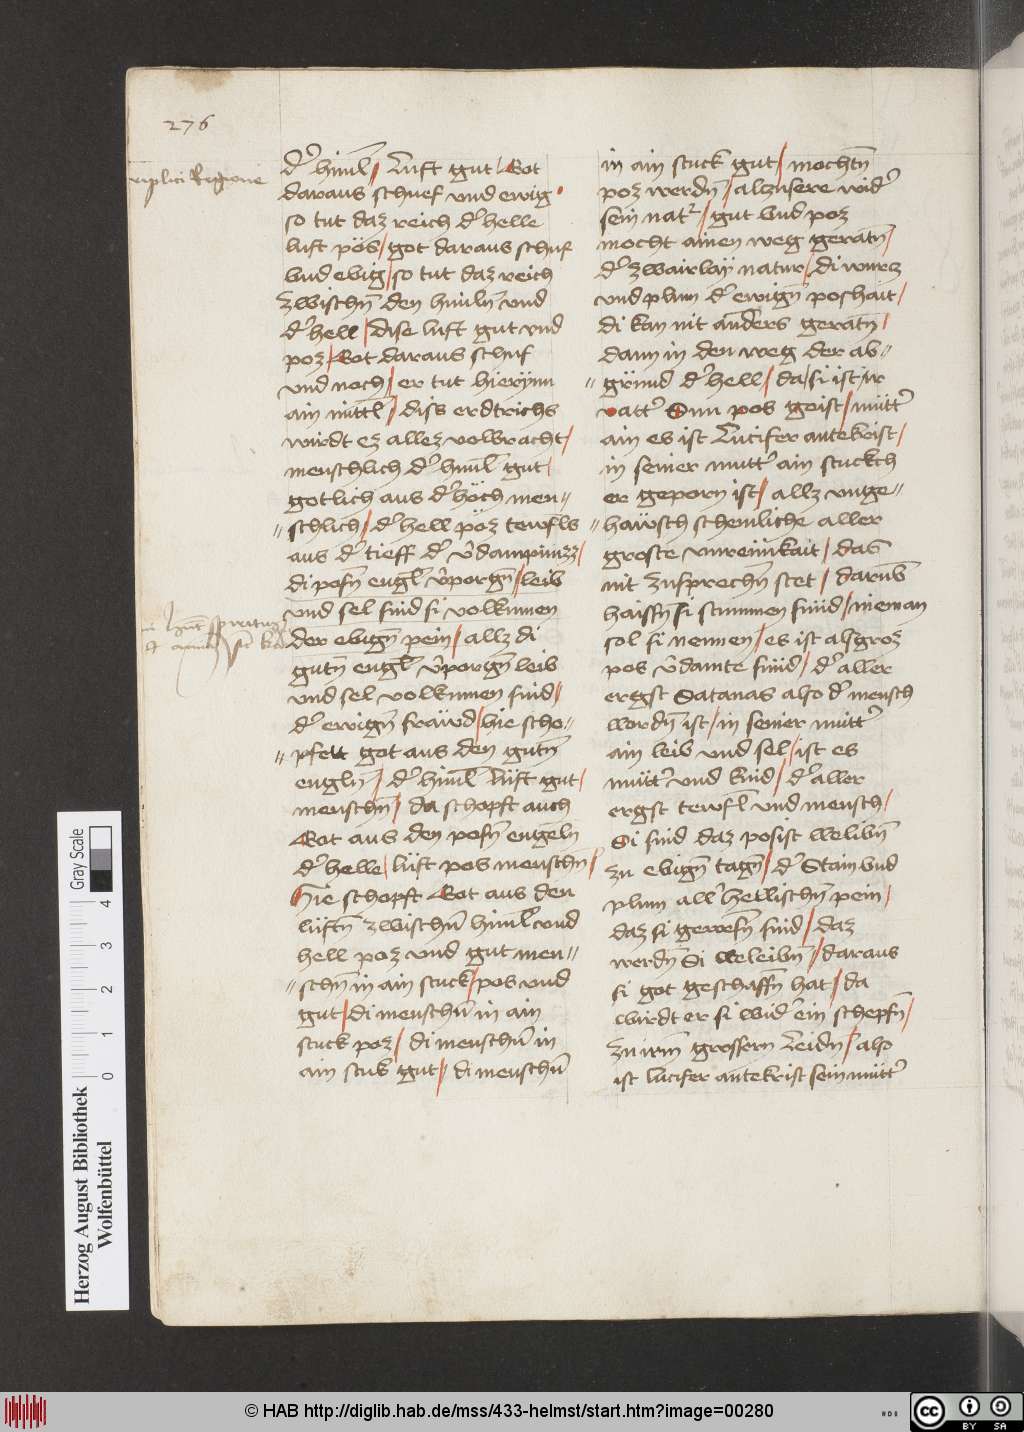 276
triplici Regione
d' himl̄ / Luft gut / Got
daraus schuef vnd ewig
so tut daz reich d' helle
luft pös / got daraus schuf
vnd ebig / so tut daz reich
zwischn̄ den himln̄ vnd
d' hell / dise luft gut vnd
poz / Got daraus schuf
vnd noch / er tut hierynn
ain mittl̄ / diss erdtrichs
wirdt ez allez volbracht /
menschlich d' himl̄ gut /
gotlich aus d' höch men=
=schlich / d' hell pöz tewfls
aus d' tieff d' v'dampnuzz /
di posn̄ engl̄ v'porgn̄ / leib
vnd sel sind si volkumen
der ebign̄ pein / allz di
gutn̄ engl̄ v'porgn̄ leib
vnd sel volkumen sind /
d' ewign̄ fräwd / hie scho=
=pfett got aus den gutn̄
engln̄ / d' himl̄ lüft gut /
menschn̄ / da schopft auch
Got aus den posn̄ engeln
d' helle / lüft pos menschn̄ /
Hie schopft Got aus den
lüftn̄ zwischn̄ himl̄ vnd
hell poz vnd gut men=
=schn̄ in ain stuck / pos vnd
gut / di menschn̄ in ain
stuck poz / di menschn̄ in
ain stuk gut / di menschn̄
in ain stuck gut / mochtn̄
poz werdn̄ / alz vnsere wid'
sein nat² / gut vnd poz
mocht ainen weg geratn̄ /
d' zwairlay natur / di wurz
vnd plum d' ewign̄ poshait /
di kan nit anders geratn̄ /
dann in den weg der ab=
=gründ d' hell / da si ist ir
vatt' Sun pos geist / mütt'
ain es ist Lucifer antekrist /
in seiner mutt' ain stuckch
er geporn ist / allz vnge=
=häwsch schemliche aller
groste vnreinikait / das
nit zusprechn̄ stet / darūb
haissn̄ si stummen sünd / nieman
sol si nennen / es ist als groz
pos v'damte sünd / d' aller
ergst Satanas also d' mensch
wordn̄ ist / in seiner mütt'
ain leib vnd sel / ist es
mütt' vnd kind / d' aller
ergst tewfl̄ vnd mensch /
Si sind daz posist weleibn̄
zu ebign̄ tagn̄ / d' Stam vnd
plum all' hellischn̄ pein /
daz si gewesn̄ sind / daz
werdn̄ Si weleibn̄ / daraus
si got geschaffn̄ hat / da
wirdt er si wid' ein schepfn̄ /
zu irm grossern Leidn̄ / also
ist lucifer antekrist sein mütt'
Herzog August Bibliothek
Wolfenbüttel
0 1 2 3 4
Gray Scale
© HAB http://diglib.hab.de/mss/433-helmst/start.htm?image=00280
cc BY SA